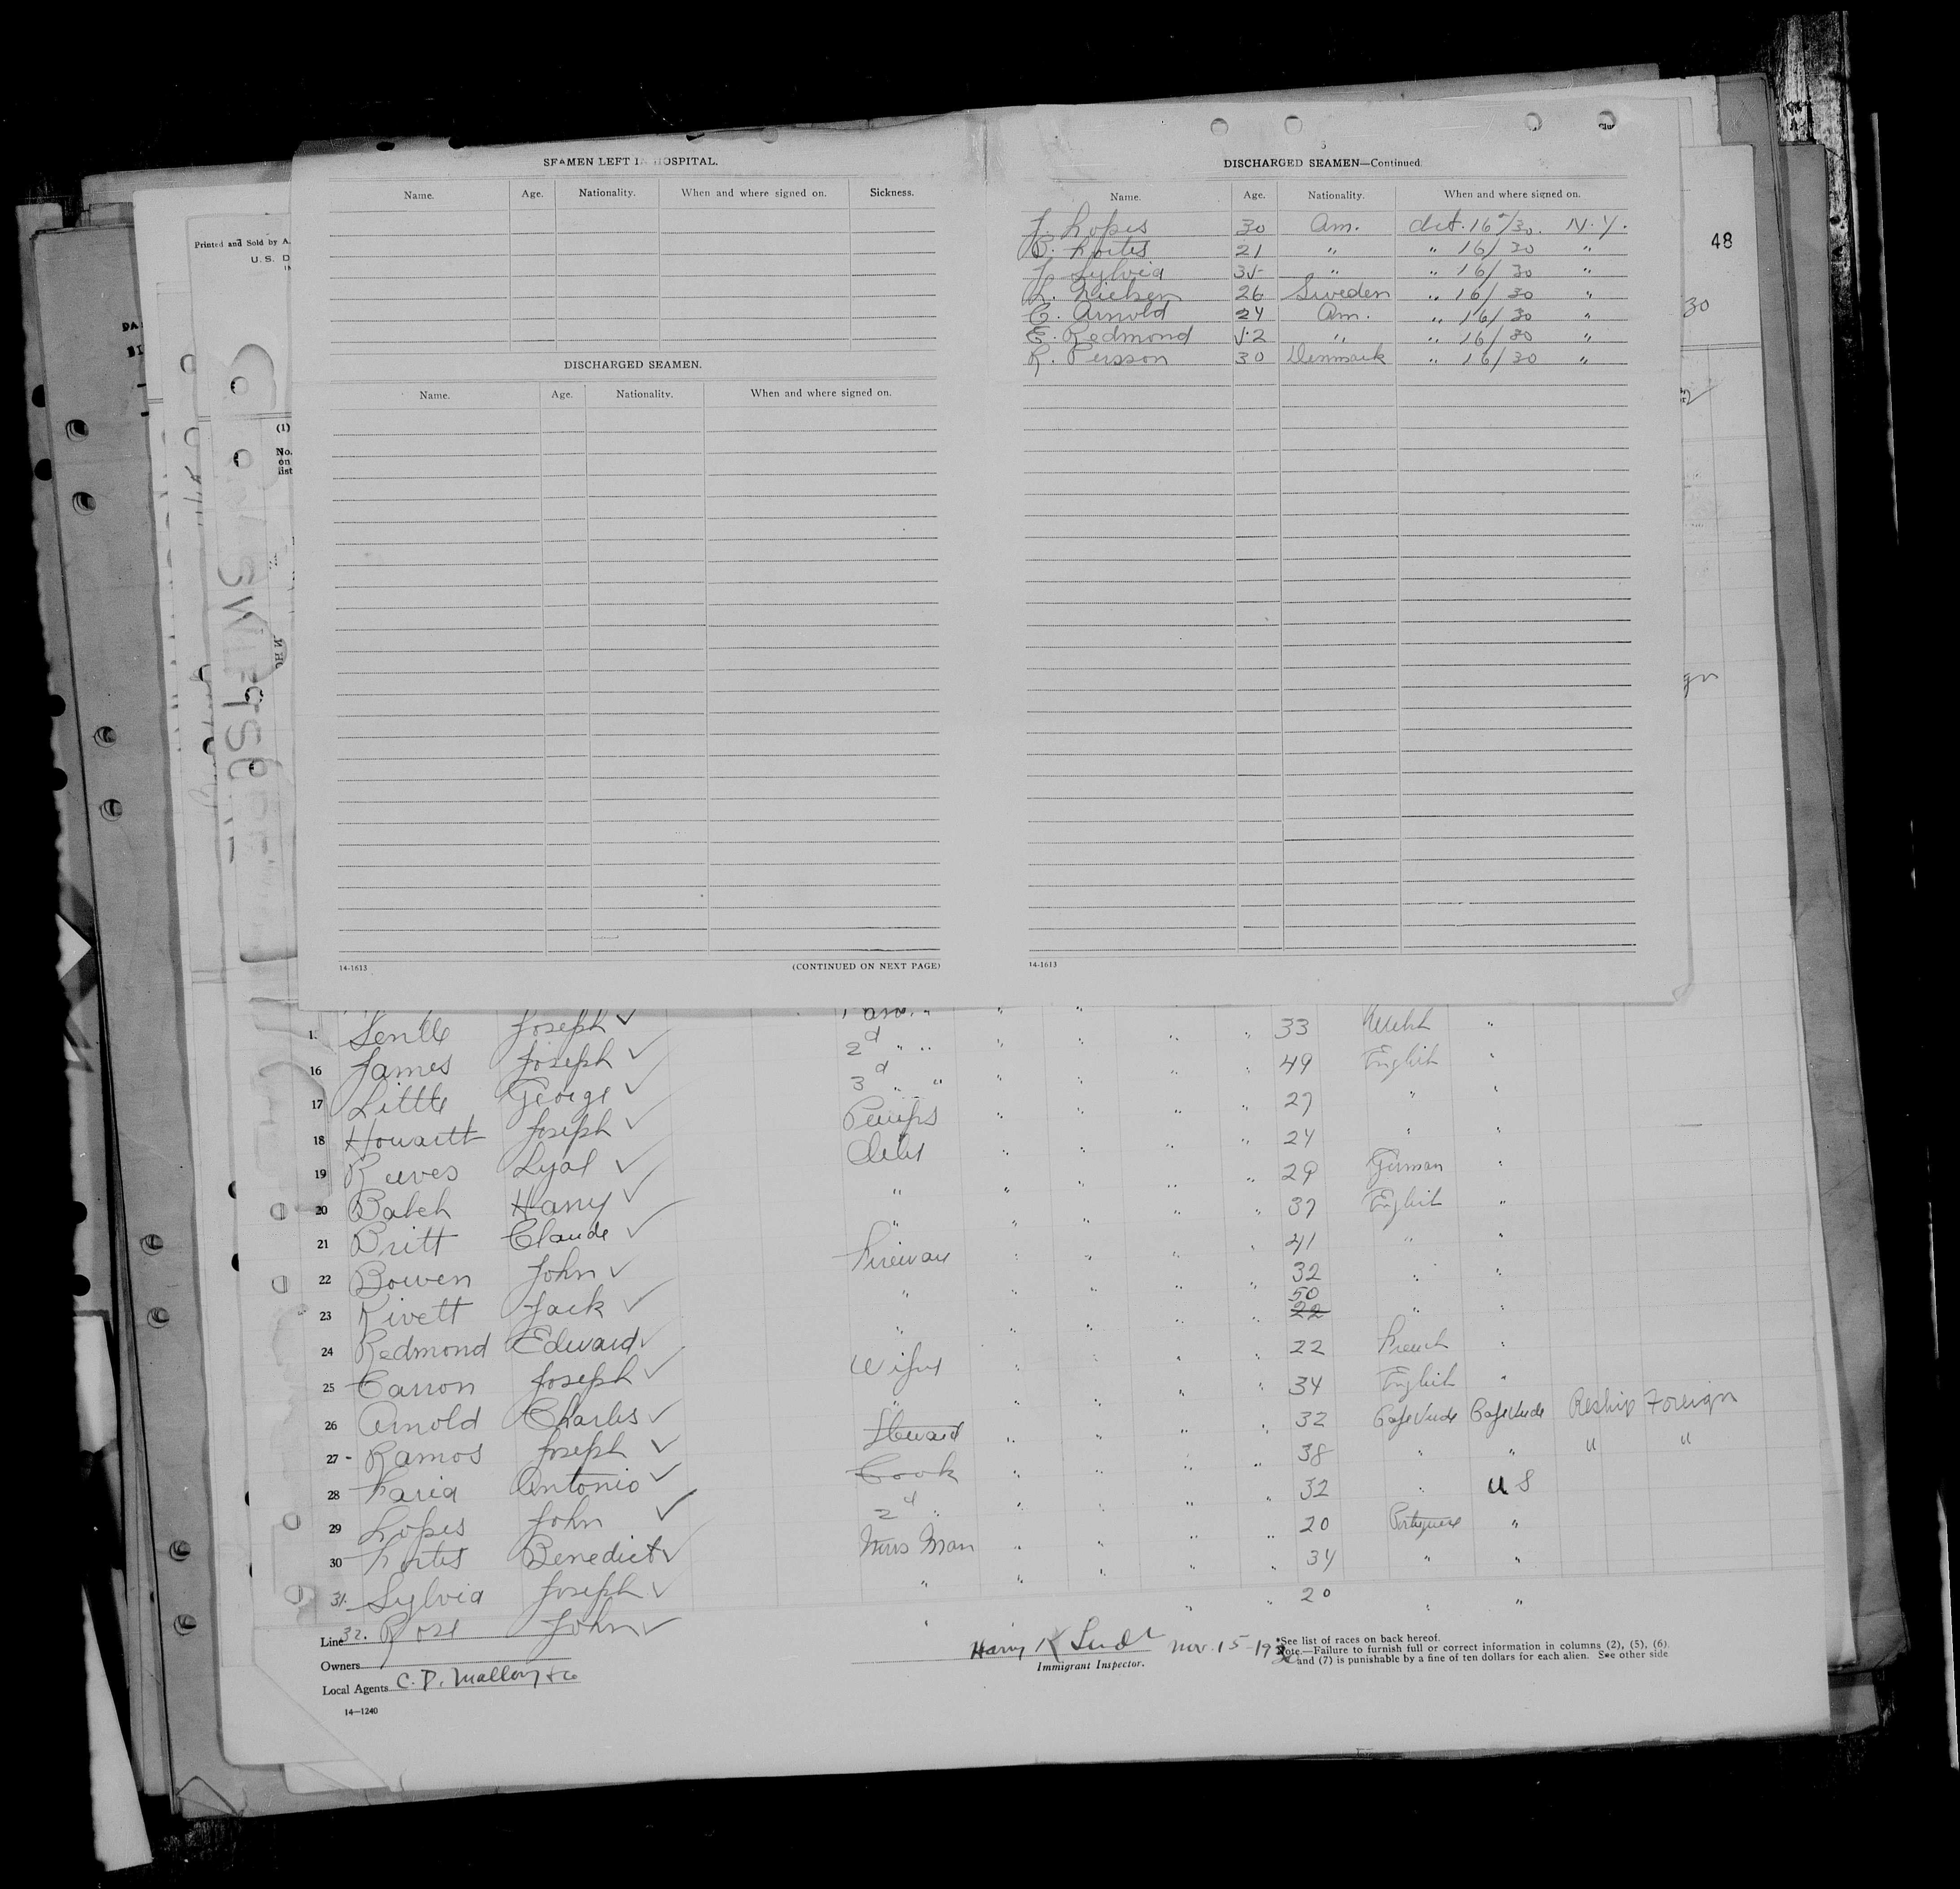 SEAMEN LEFT IN HOSPITAL.
Name. Age. Nationality. When and where signed on. Sickness.
DISCHARGED SEAMEN.
Name. Age. Nationality. When and where signed on.
14-1613 (CONTINUED ON NEXT PAGE)
DISCHARGED SEAMEN—Continued.
Name. Age. Nationality. When and where signed on.
J. Lopes 30 Am. Oct. 16/30. N.Y.
B. Fortes 21 " " 16/30 "
J. Sylvia 35 " " 16/30 "
L. Nielsen 26 Sweden " 16/30 "
C. Arnold 24 Am. " 16/30 "
E. Redmond 52 " " 16/30 "
R. Persson 30 Denmark " 16/30 "
14-1613
48
30
Printed and Sold by A.
U.S. D
(1)
No.
on
list
Joseph 33 Welsh "
16 James Joseph 2d " " 49 English "
17 Little George 3d " " 27 " "
18 Howartt Joseph Pumps 24 " "
19 Reeves Lyal Oiler 29 German "
20 Balch Harry " 37 English "
21 Britt Claude " 41 " "
22 Bowen John Fireman 32 " "
23 Rivett Jack " 50 22 " "
24 Redmond Edward " 22 French "
25 Carron Joseph Wiper 34 English "
26 Arnold Charles " 32 Cape Verde Cape Verde Reship Foreign
27 - Ramos Joseph Steward 38 " " " "
28 Faria Antonio Cook 32 " U S
29 Lopes John 2d " 20 Portuguese "
30 Fortes Benedict Mess Man 34 " "
31. Sylvia Joseph " 20 " "
Line 32. Rose John "
Owners
Local Agents C. D. Mallory & Co
14—1240
Harry K Nov. 15-1930
Immigrant Inspector.
*See list of races on back hereof.
Note.—Failure to furnish full or correct information in columns (2), (5), (6)
and (7) is punishable by a fine of ten dollars for each alien. See other side